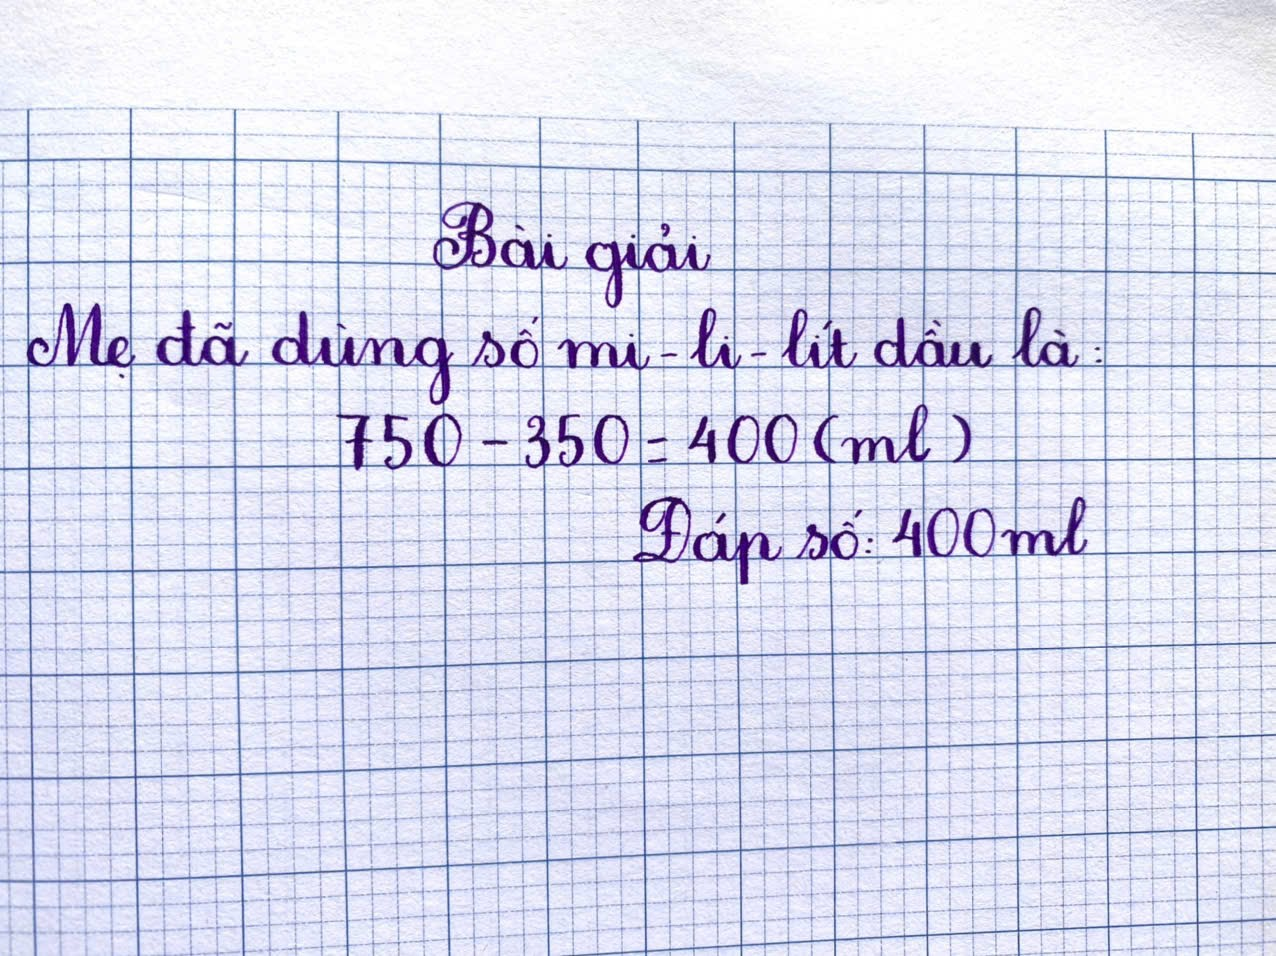 Bài giải
Mẹ đã dùng số mi-li-lít dầu là:
750 - 350 = 400 (ml)
Đáp số: 400ml